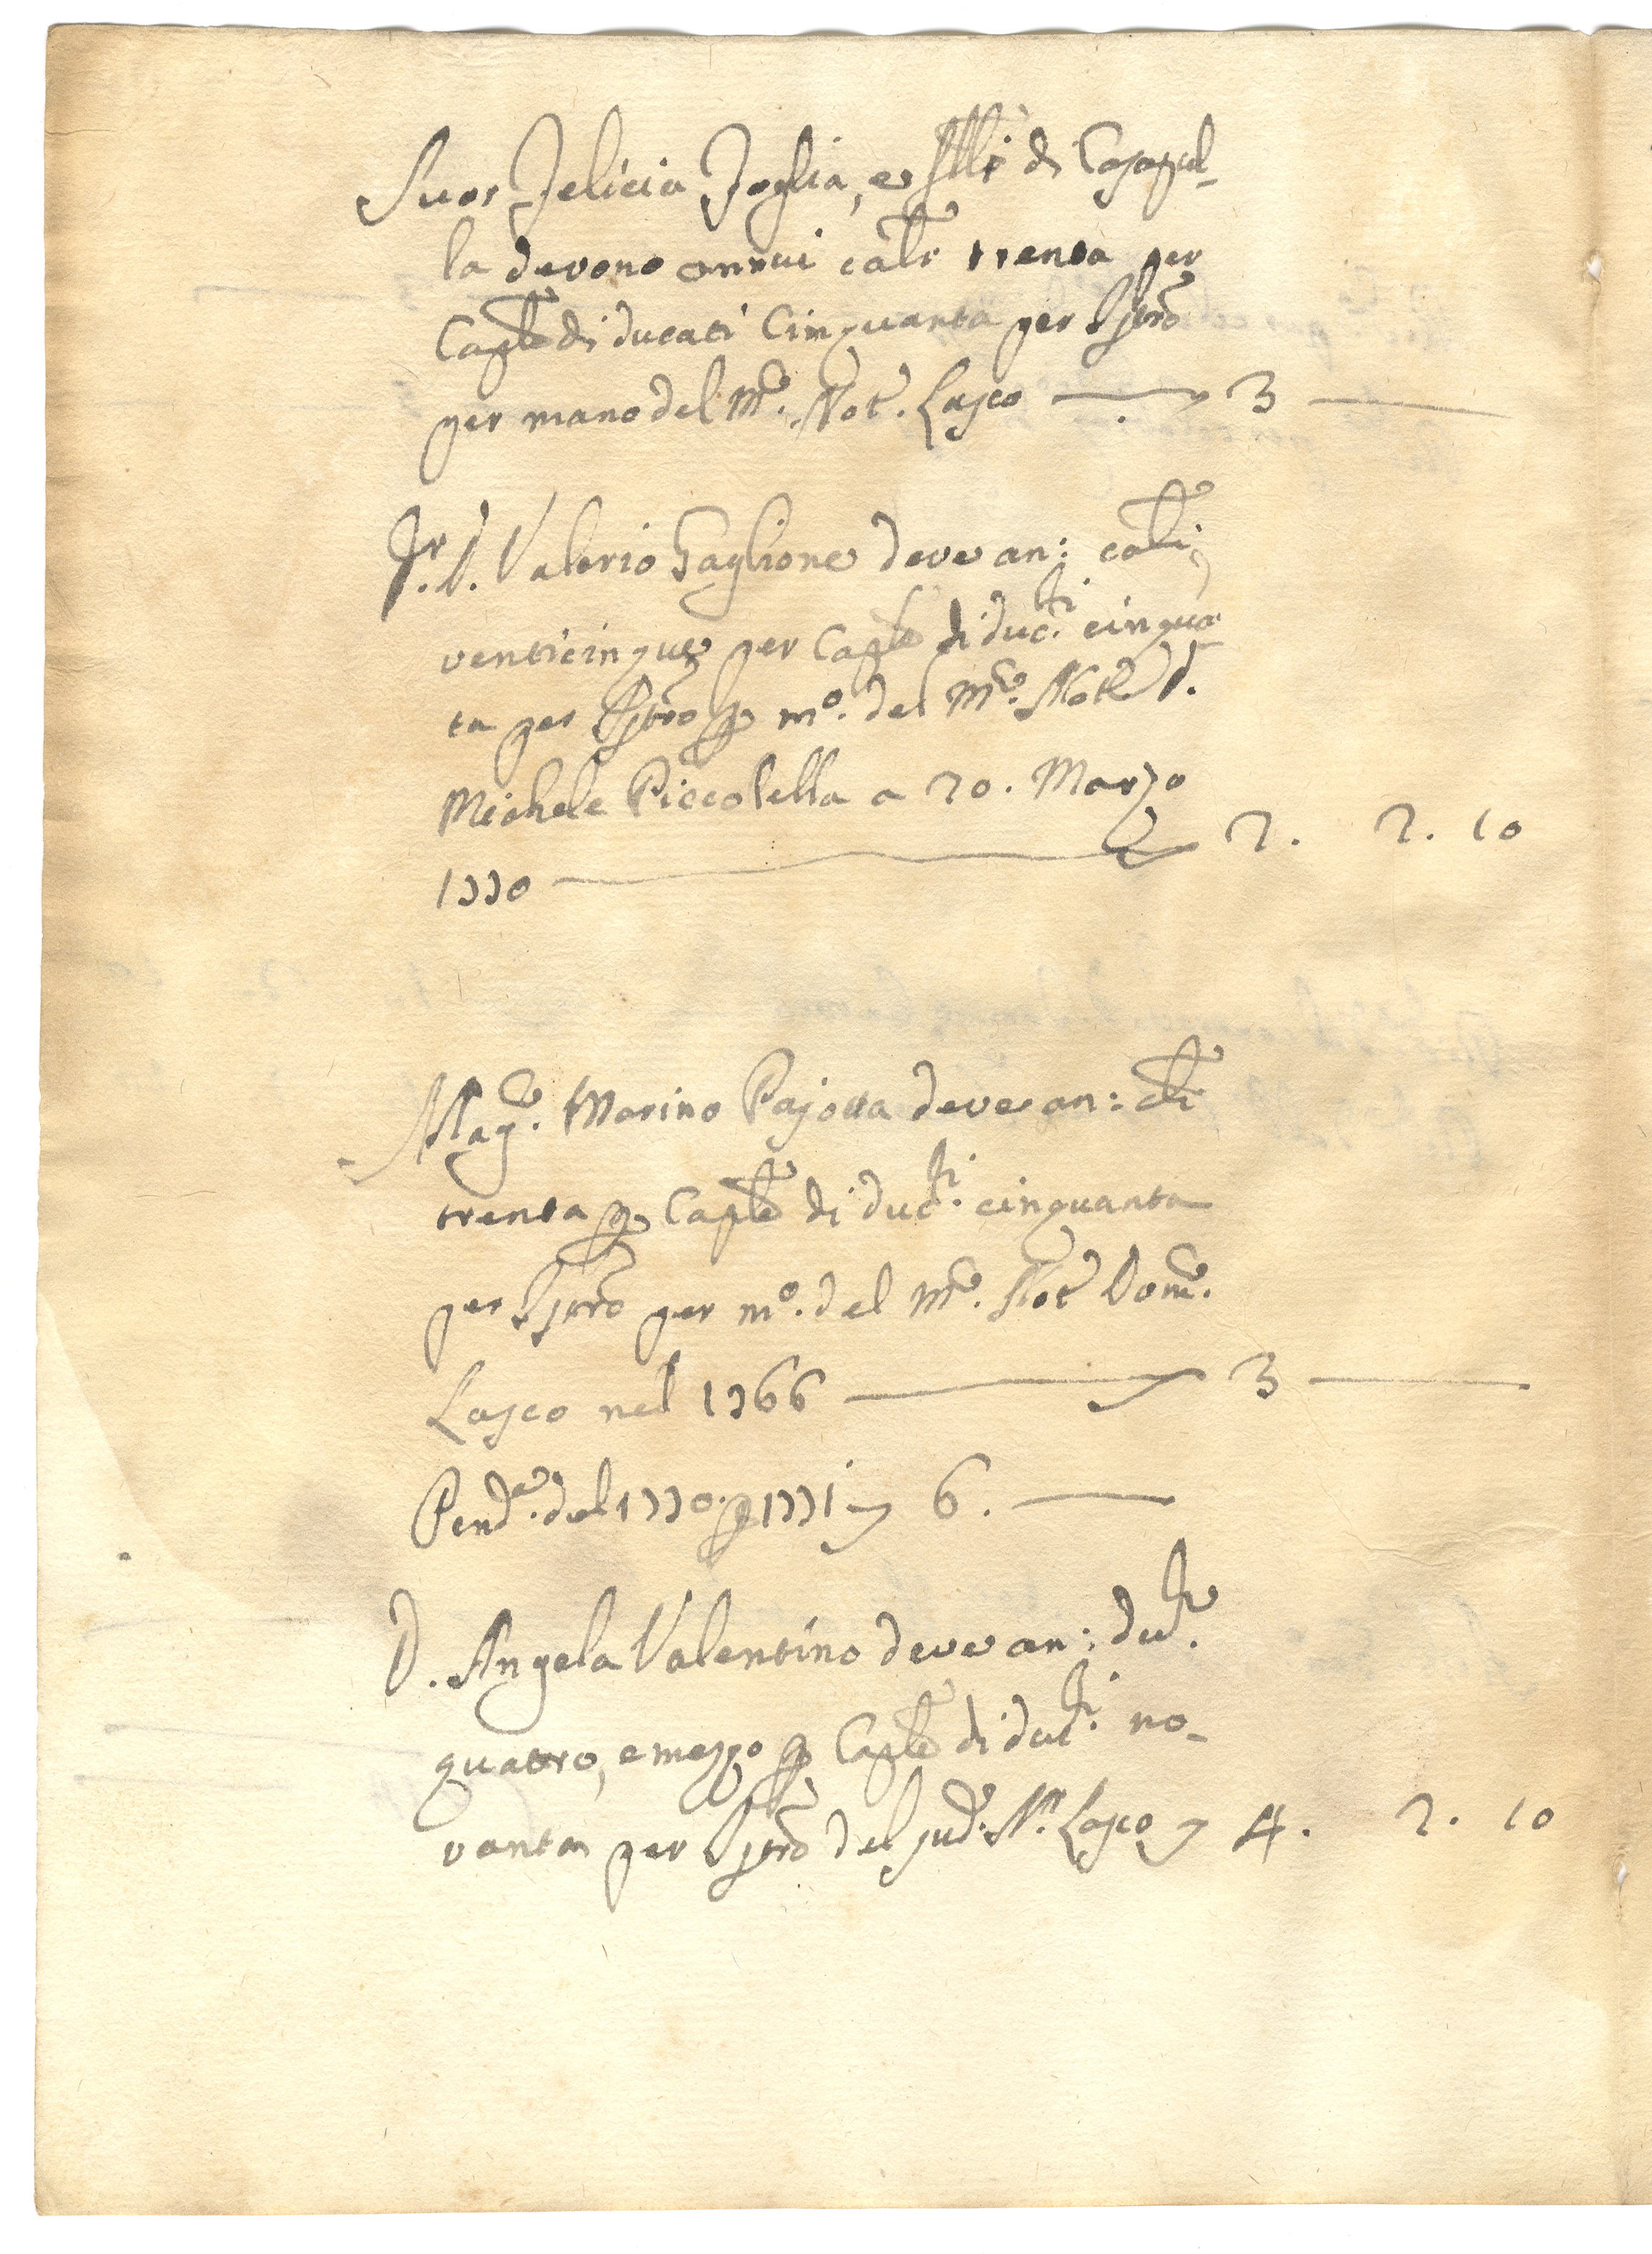 Suor Felicia Foglia, e f̃lli di Casapul-
la devono annui carlr trenta per
Cap̃le di ducati Cinquanta per Istro
per mano del Mco. Not. Lasco — 3 —
D. Valerio Gaglione deve an: carli
venticinque per Caple di ducti. cinqua-
ta per Istro per mo. del Mco. Note D.
Michele Piccolella a 20. Marzo
1770 — 2. 2. 10
Magco. Marino Pajotta deve an: cli
trenta per Caple di ducti. cinquanta
per Istro per mo. del Mco. Not Domco.
Lasco nel 1766 — 3 —
Pende. del 1770. per 1771 6. —
D. Angela Valentino deve an: duti.
quatro, e mezzo per Caple di ducti. no-
vanta per Istro del sude. Nr. Lasco 4. 2. 10